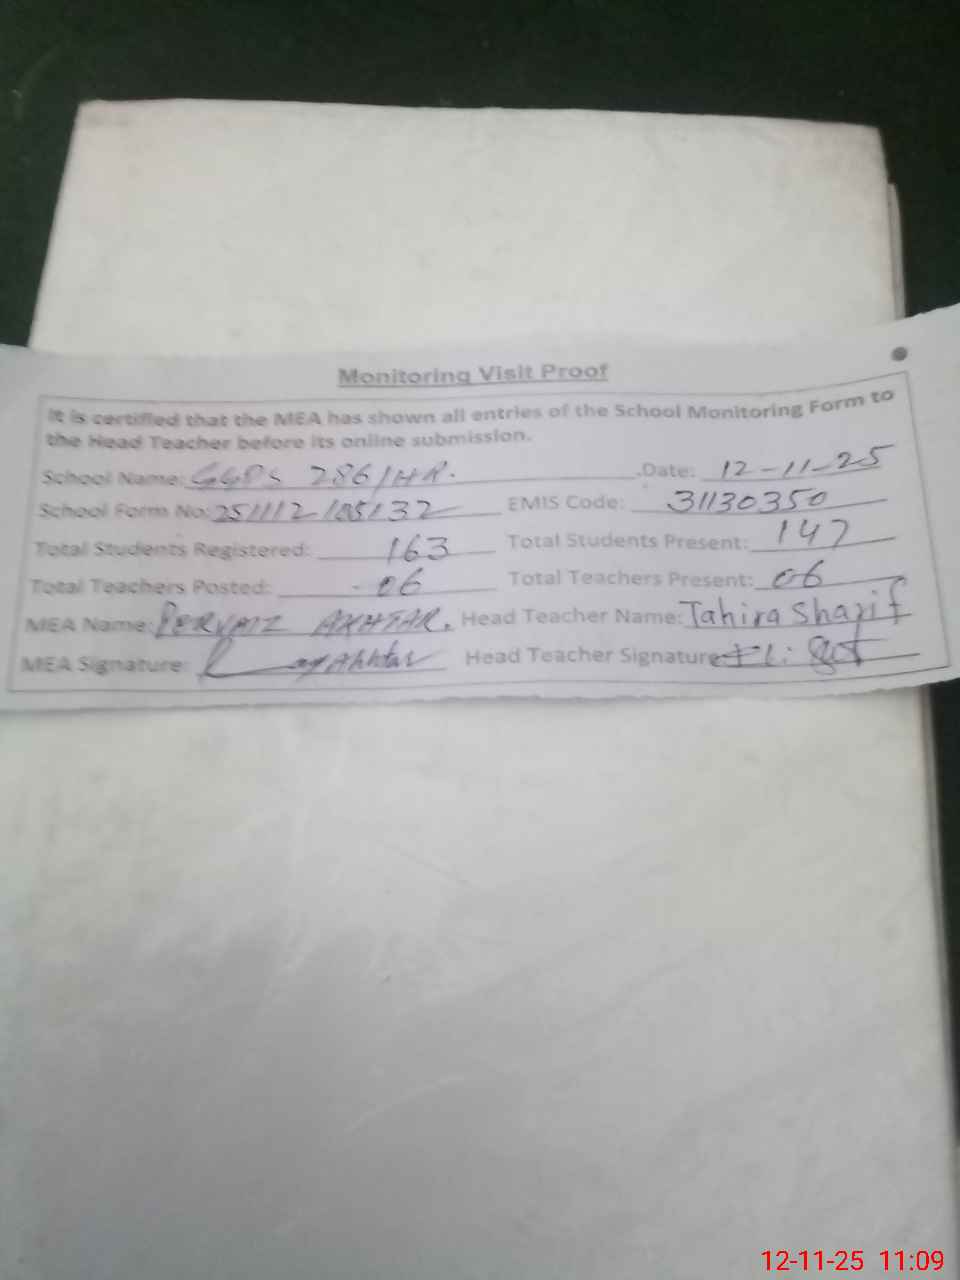 Monitoring Visit Proof
It is certified that the MEA has shown all entries of the School Monitoring Form to
the Head Teacher before its online submission.
School Name: GGPS 286/HR. Date: 12-11-25
School Form No: 251112/105132 EMIS Code: 31130350
Total Students Registered: 163 Total Students Present: 147
Total Teachers Posted: 06 Total Teachers Present: 06
MEA Name: PERVAIZ AKHTAR. Head Teacher Name: Tahira Sharif
MEA Signature: Head Teacher Signature
12-11-25 11:09